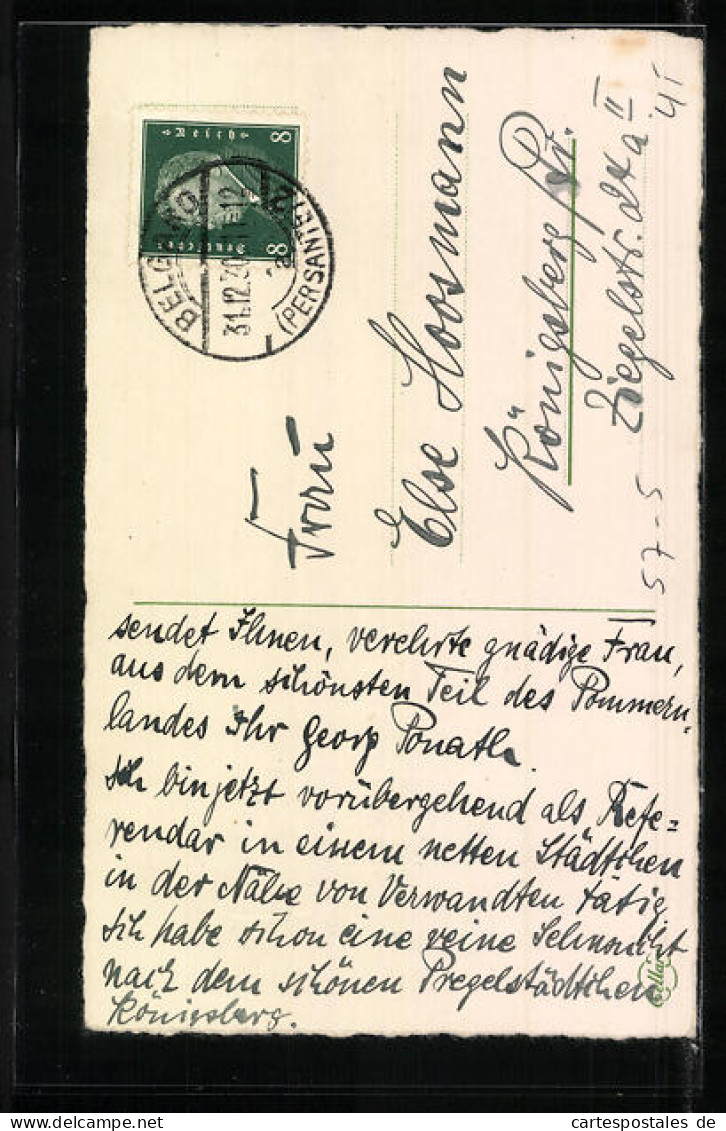 Reich
8 8
Deutsches
BELGARD
31.12.30 11-12
a
(PERSANTE) 2
Frau
Else Hoosmann
Königsberg Pr.
Ziegelstr. II
57-5
sendet Ihnen, verehrte gnädige Frau,
aus dem schönsten Teil des Pommern-
landes Ihr Georg Ponath.
Ich bin jetzt vorübergehend als Refe=
rendar in einem netten Städtchen
in der Nähe von Verwandten tätig
Ich habe schon eine reine Sehnsucht
nach dem schönen Pregelstädtchen
Königsberg.
cartespostales de